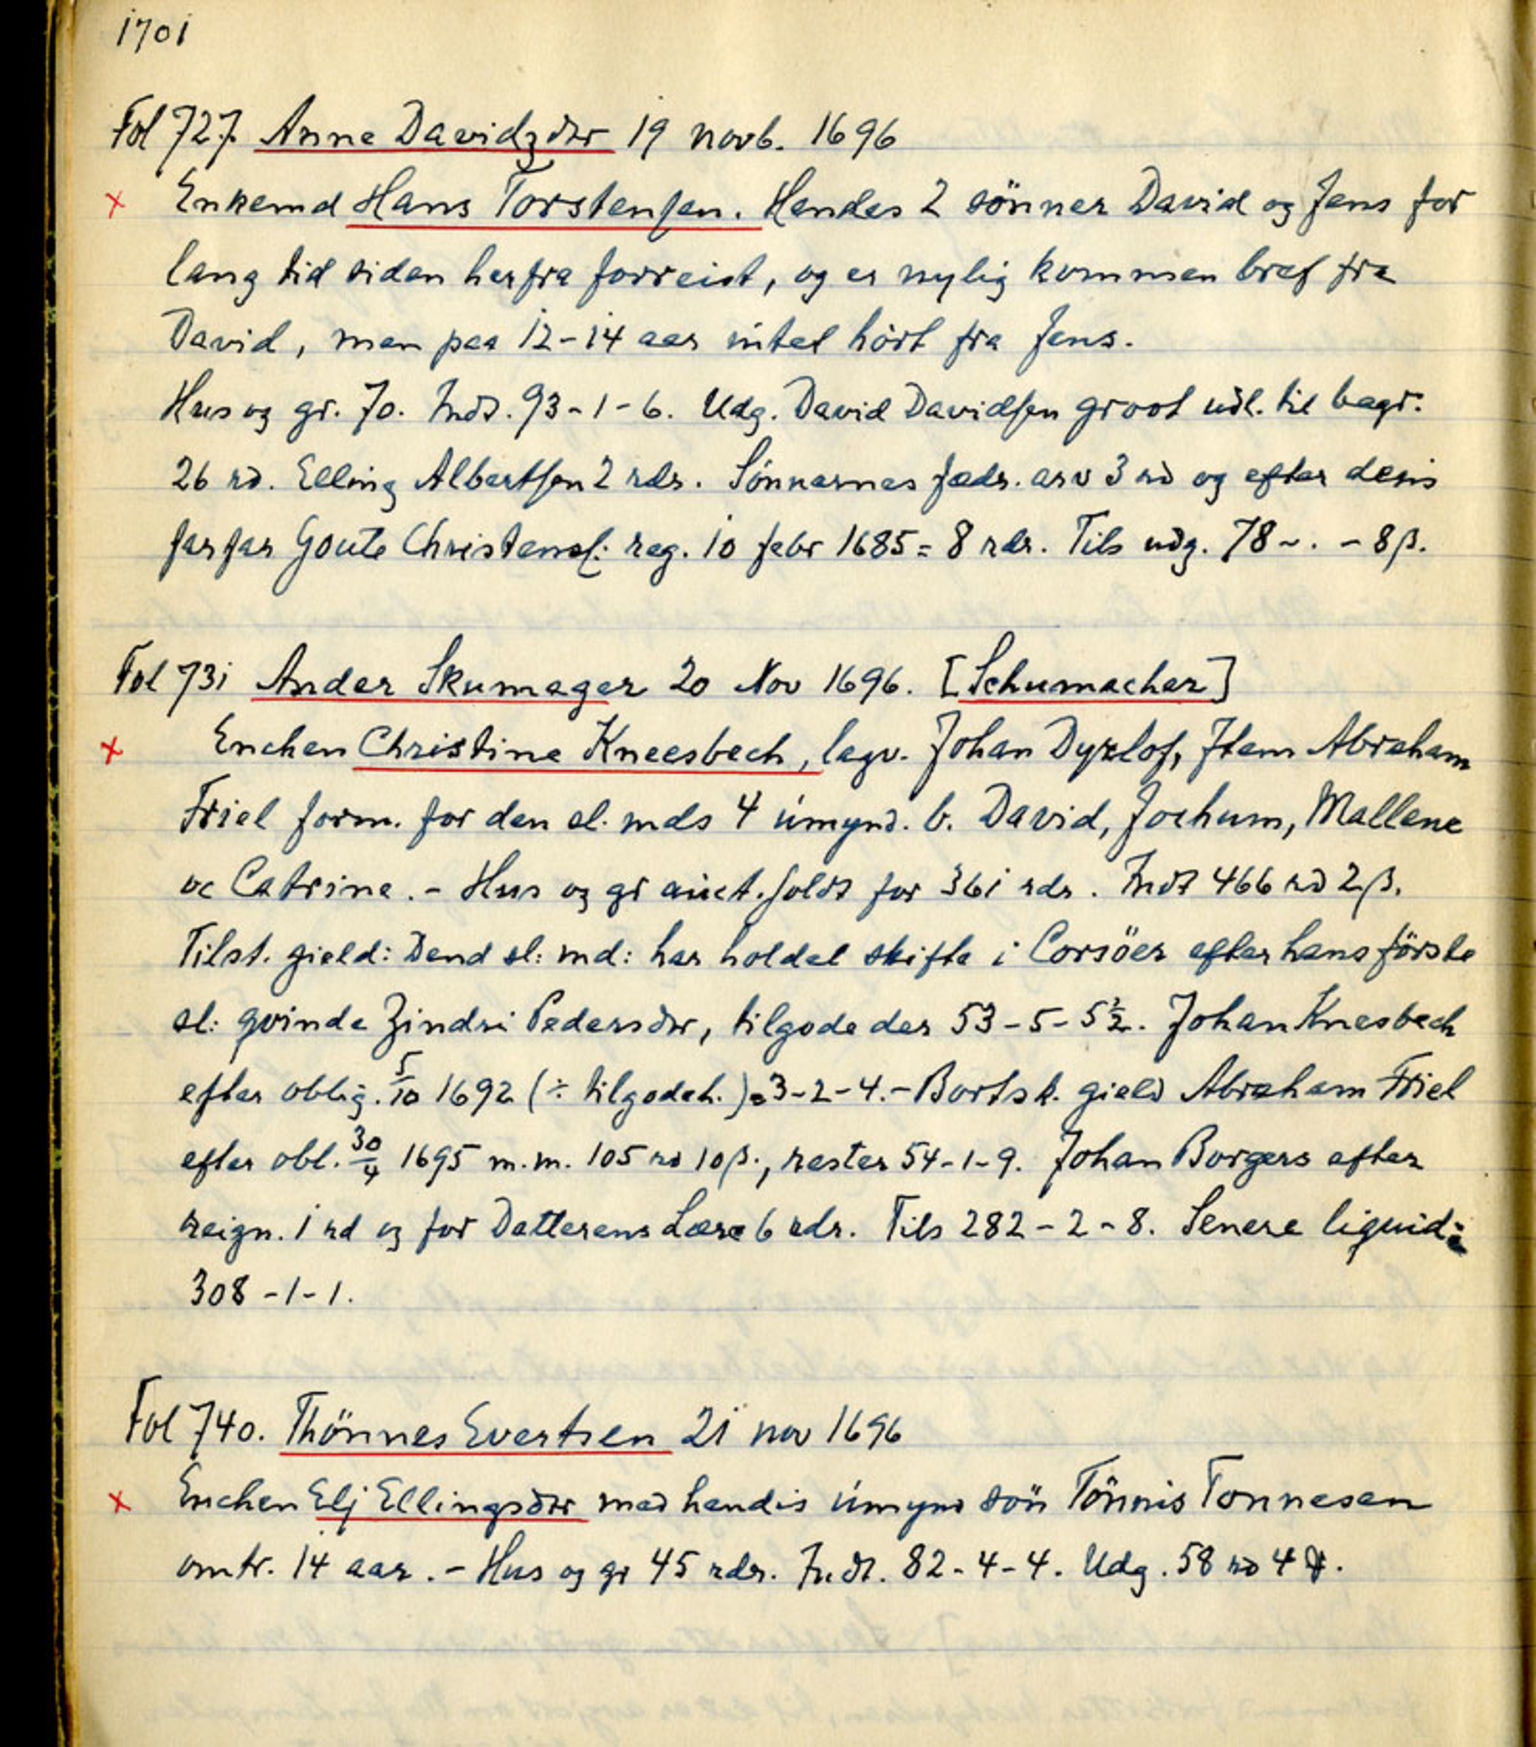 1701
Fol 727. Anne Davidzdtr 19 novb. 1696
x Enkemd Hans Torstensen. Hendes 2 sönner David og Jens for
lang tid siden herfra forreist, og er nylig kommen bref fra
David, men paa 12-14 aar intet hört fra Jens.
Hus og gr. 70. Indt. 93-1-6. Udg. David Davidsen groot udl. til begr.
26 rd. Elling Albertsen 2 rdr. Sönnernes fædr. arv 3 rd og efter deris
farfar Goute Christens.: reg. 10 febr 1685 = 8 rdr. Tils udg. 78 ~. - 8 β.
Fol 731 Ander Skumager 20 Nov 1696. [Schumacher]
x Enchen Christine Kneesbech, lagv. Johan Dyrlof, Item Abraham
Friel form. for den sl. mds 4 umynd. b. David, Jochum, Mallene
oc Catrine. - Hus og gr auct. soldt for 361 rdr. Indt 466 rd 2 β.
Tilst. gield: Dend sl: md: har holdet skifte i Corsöer efter hans förste
sl: qvinde Zindri Pedersdtr, tilgode der 53-5-5½. Johan Knesbech
efter oblig. 5/10 1692 (÷ tilgodeh.) 3-2-4. - Bortsk. gield Abraham Friel
efter obl. 30/4 1695 m.m. 105 rd 10 β., rester 54-1-9. Johan Borgers efter
reign. 1 rd og for Datterens Lære 6 rdr. Tils 282-2-8. Senere liquid:
308-1-1.
Fol 740. Thönnes Evertsen 21 nov 1696
x Enchen Elj Ellingsdtr med hendis umynd sön Tönnis Tonnesen
omtr. 14 aar. - Hus og gr 45 rdr. Indt. 82-4-4. Udg. 58 rd 4